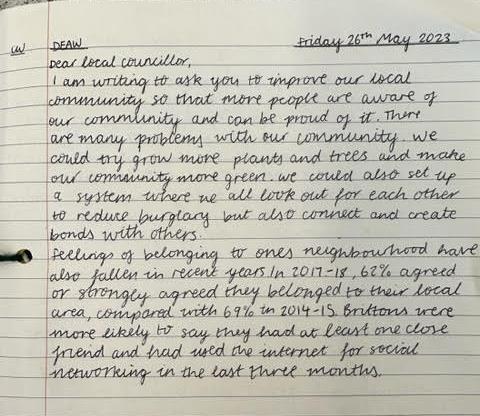 LW DEAW Friday 26th May 2023
Dear local councillor,
I am writing to ask you to improve our local
community so that more people are aware of
our community and can be proud of it. There
are many problems with our community. We
could try grow more plants and trees and make
our community more green. We could also set up
a system where we all look out for each other
to reduce burglary but also connect and create
bonds with others.
Feelings of belonging to ones neighbourhood have
also fallen in recent years. In 2017-18, 62% agreed
or strongly agreed they belonged to their local
area, compared with 69% in 2014-15. Britons were
more likely to say they had at least one close
friend and had used the internet for social
networking in the last three months.